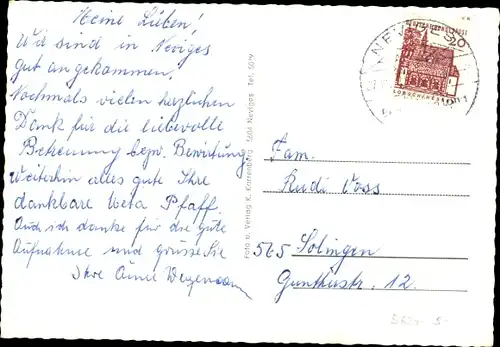 Meine Lieben!
Wir sind in Neviges
gut angekommen.
Nochmals vielen herzlichen
Dank für die liebevolle
Betreuung bezw. Bewirtung
Weiterhin alles gute Ihre
dankbare Pfaff.
Auch ich danke für die gute
Aufnahme und grüsse Sie
Ihre Änne
Foto u. Verlag K. Korrenberg 5604 Neviges Tel. 5019
NEVIGES
20
Fam.
Rudi Voss
565 Solingen
12.